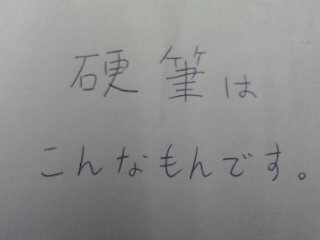 硬筆は
こんなもんです。